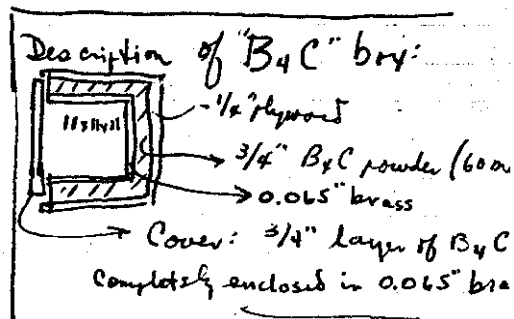 Description of "B4C" box:
1/4" Plywood
3/4" B4C powder (60 m
0.065" brass
Cover: 3/4" layer of B4C
Completely enclosed in 0.065" bra